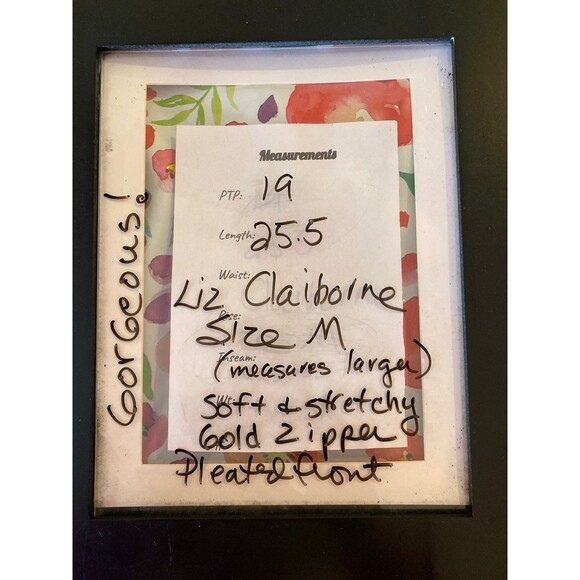 Measurements
PTP: 19
Length: 25.5
Waist:
Liz Claiborne
Rise:
Size M
Inseam:
(measures larger)
Wt:
Soft & stretchy
Gold Zipper
Pleated front
Gorgeous!